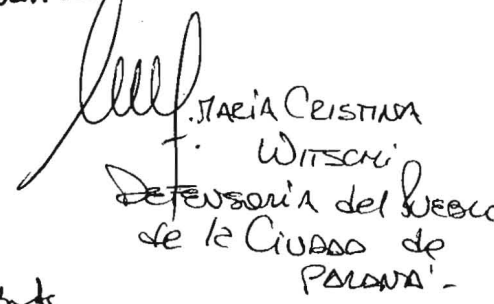 MARÍA CRISTINA
WITSCHI
DEFENSORÍA del PUEBLO
de la CIUDAD de
PARANÁ.-